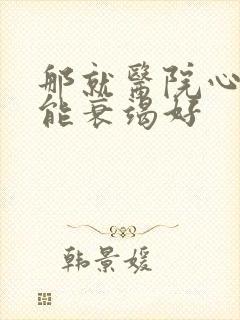 那就醫院心
能衰竭好
韩景媛